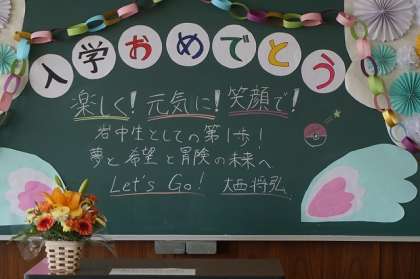 入学おめでとう
楽しく!元気に!笑顔で!
岩中生としての第1歩!
夢と希望と冒険の未来へ
Let's Go! 大西将弘